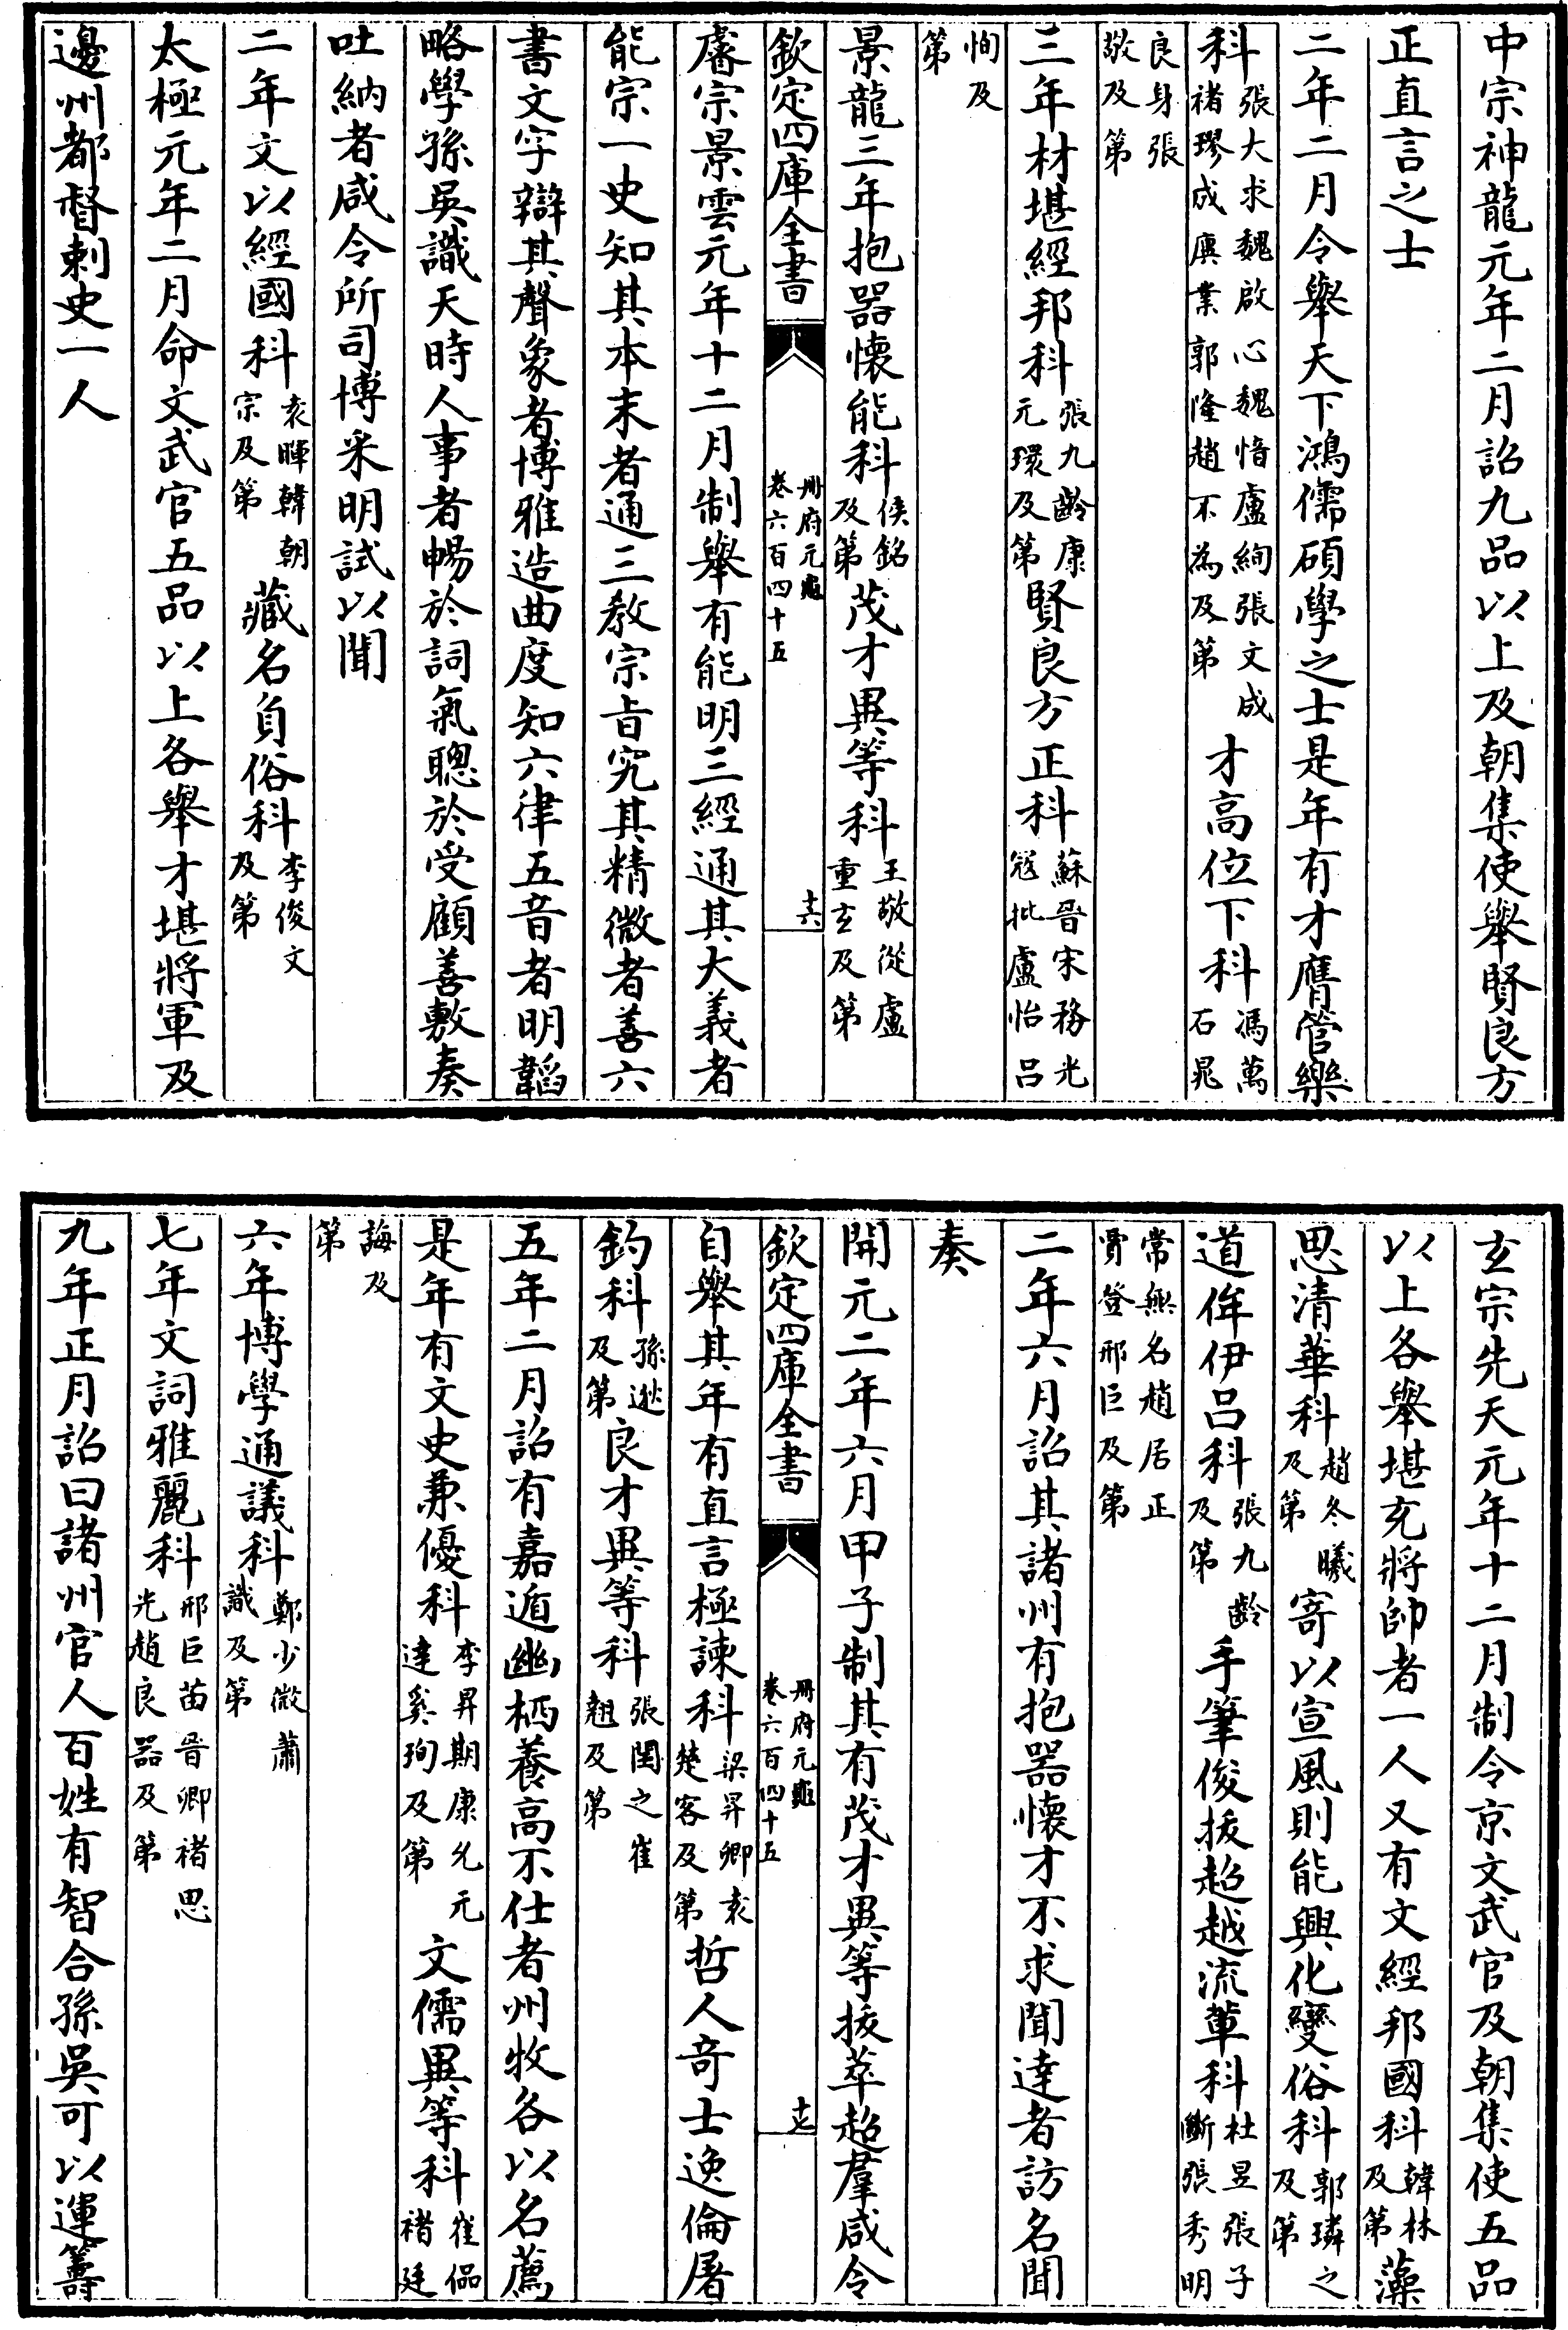 中宗神龍元年二月詔九品以上及朝集使舉賢良方
正直言之士
二年二月令舉天下鴻儒碩學之士是年有才膺管樂
科張大求魏啟心魏愔盧絢張文成褚璆成廙業郭隆趙不為及第才高位下科馮萬石晁
良身張敬及第
三年材堪經邦科張九齡康元瓌及第賢良方正科蘇晉宋務光寇泚盧怡呂
恂及第
景龍三年抱器懷能科侯銘及第茂才異等科王敬從盧重玄及第
欽定四庫全書 冊府元龜卷六百四十五 十六
睿宗景雲元年十二月制舉有能明三經通其大義者
能宗一史知其本末者通三教宗旨究其精微者善六
書文字辯其聲象者博雅造曲度知六律五音者明韜
略學孫吳識天時人事者暢於詞氣聰於受顧善敷奏
吐納者咸令所司博采明試以聞
二年文以經國科袁暉韓朝宗及第藏名負俗科李俊文及第
太極元年二月命文武官五品以上各舉才堪將軍及
邊州都督刺史一人
玄宗先天元年十二月制令京文武官及朝集使五品
以上各舉堪充將帥者一人又有文經邦國科韓林及第藻
思清華科趙冬曦及第寄以宣風則能興化變俗科郭璘之及第
道侔伊呂科張九齡及第手筆俊拔超越流輩科杜昱張子斷張秀明
常無名趙居正賈登邢巨及第
二年六月詔其諸州有抱器懷才不求聞達者訪名聞
奏
開元二年六月甲子制其有茂才異等拔萃超羣咸令
欽定四庫全書 冊府元龜卷六百四十五 十七
自舉其年有直言極諫科梁昇卿袁楚客及第哲人奇士逸倫屠
釣科孫逖及第良才異等科張閏之崔翹及第
五年二月詔有嘉遁幽栖養高不仕者州牧各以名薦
是年有文史兼優科李昇期康允元達奚珣及第文儒異等科崔偘褚廷
誨及第
六年博學通議科鄭少微蕭識及第
七年文詞雅麗科邢巨苗晉卿褚思光趙良器及第
九年正月詔曰諸州官人百姓有智合孫吳可以運籌